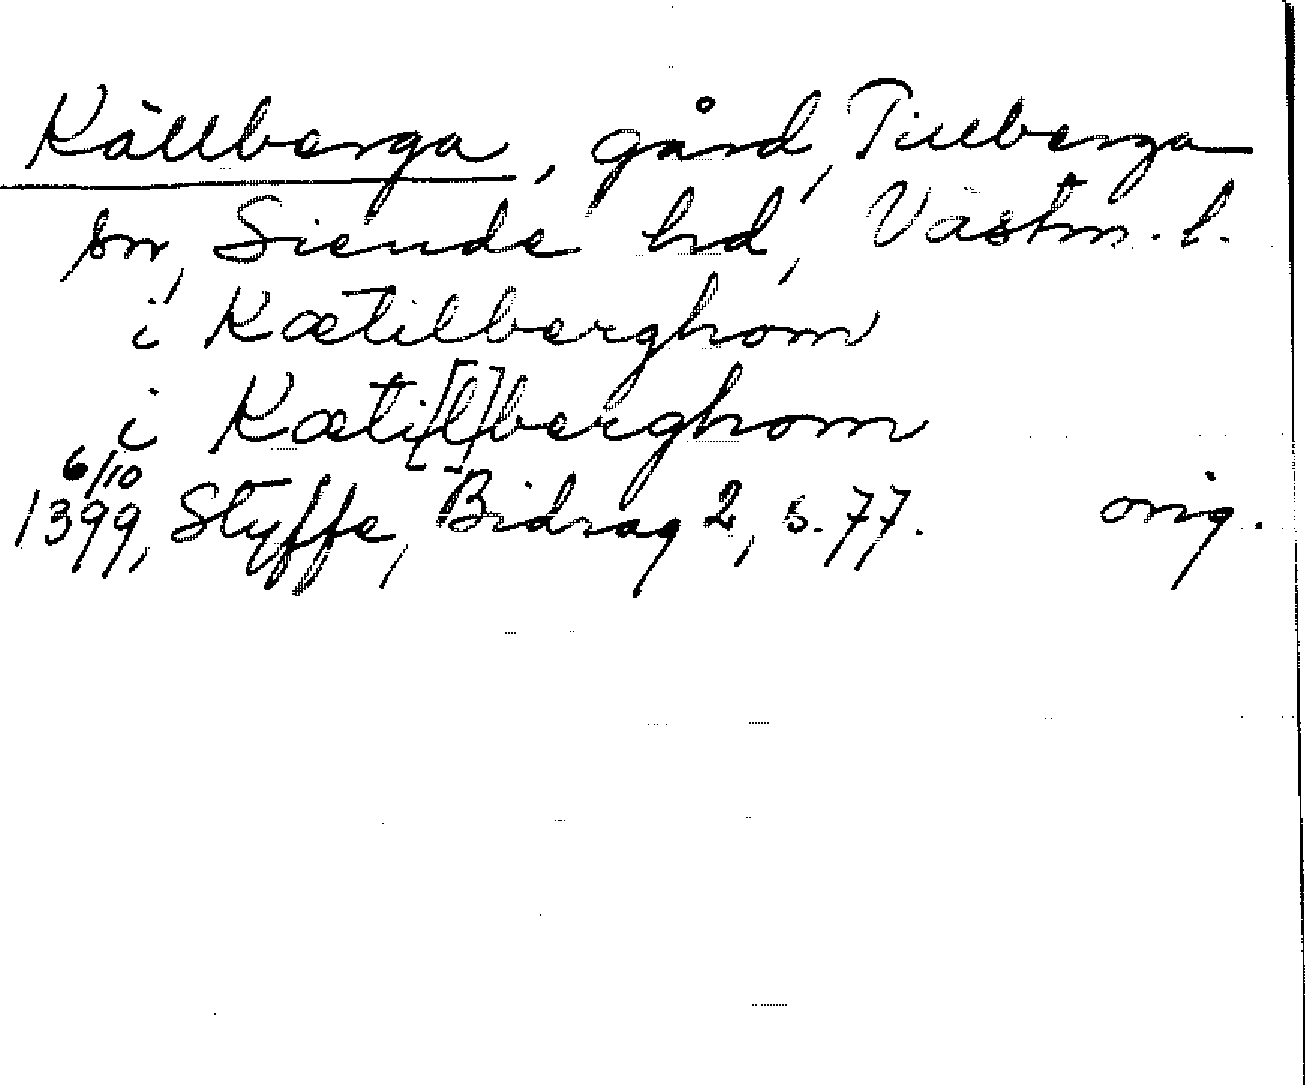 Källberga, gård, Tillberga
sn, Siende hd, Västm. l.
i Kætilberghom
i Kæti[l]berghom
6/10
1399, Styffe, Bidrag 2, s. 77. orig.